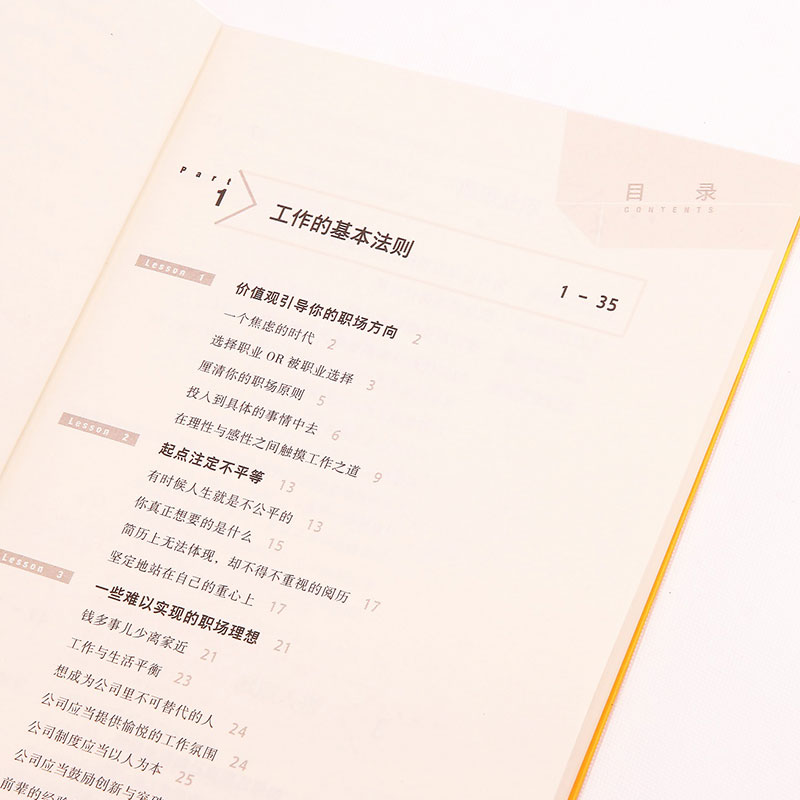 目 录
CONTENTS
Part
1
工作的基本法则
1 - 35
Lesson 1
价值观引导你的职场方向 2
一个焦虑的时代 2
选择职业 OR 被职业选择 3
厘清你的职场原则 5
投入到具体的事情中去 6
在理性与感性之间触摸工作之道 9
Lesson 2
起点注定不平等 13
有时候人生就是不公平的 13
你真正想要的是什么 15
简历上无法体现，却不得不重视的阅历 17
坚定地站在自己的重心上 17
Lesson 3
一些难以实现的职场理想 21
钱多事儿少离家近 21
工作与生活平衡 23
想成为公司里不可替代的人 24
公司应当提供愉悦的工作氛围 24
公司制度应当以人为本 25
公司应当鼓励创新与
前辈的经验